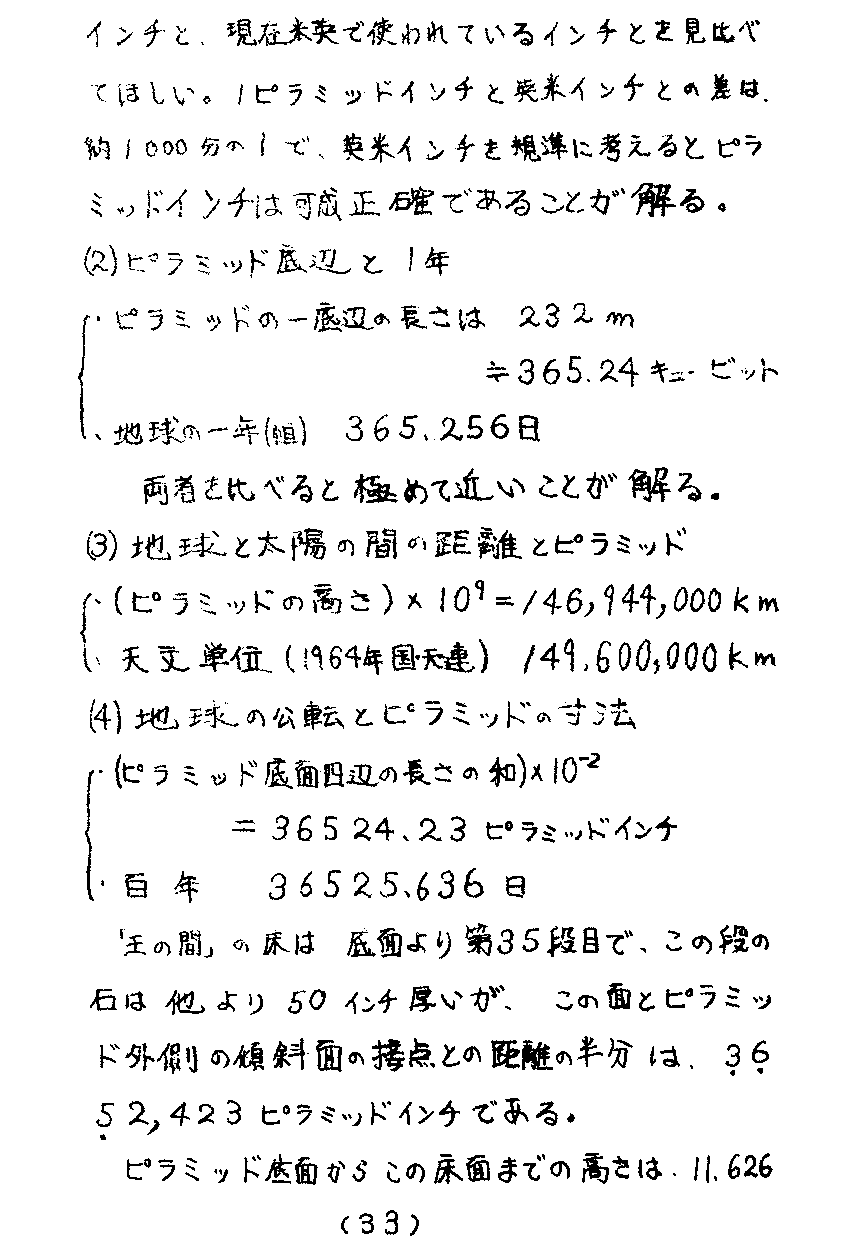 インチと、現在米英で使われているインチとを見比べ
てほしい。1ピラミッドインチと英米インチとの差は、
約1000分の1で、英米インチを規準に考えるとピラ
ミッドインチは可成正確であることが解る。
(2)ピラミッド底辺と1年
・ピラミッドの一底辺の長さは 232m
≒365.24キュービット
・地球の一年(恒) 365.256日
両者を比べると極めて近いことが解る。
(3)地球と太陽の間の距離とピラミッド
・(ピラミッドの高さ)×10⁹=146,944,000km
・天文単位(1964年国・天連) 149,600,000km
(4)地球の公転とピラミッドの寸法
・(ピラミッド底面四辺の長さの和)×10⁻²
=36524.23ピラミッドインチ
・百年 36525.636日
「王の間」の床は 底面より第35段目で、この段の
石は他より50インチ厚いが、この面とピラミッ
ド外側の傾斜面の接点との距離の半分は、36
52,423ピラミッドインチである。
ピラミッド底面からこの床面までの高さは、11.626
(33)